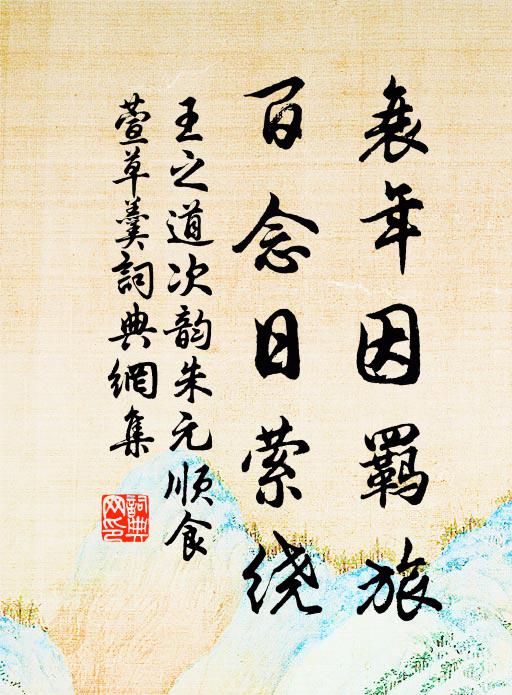 衰年因羁旅
百念日萦绕
王之道次韵朱元顺食
萱草羹詞典網集
詞典